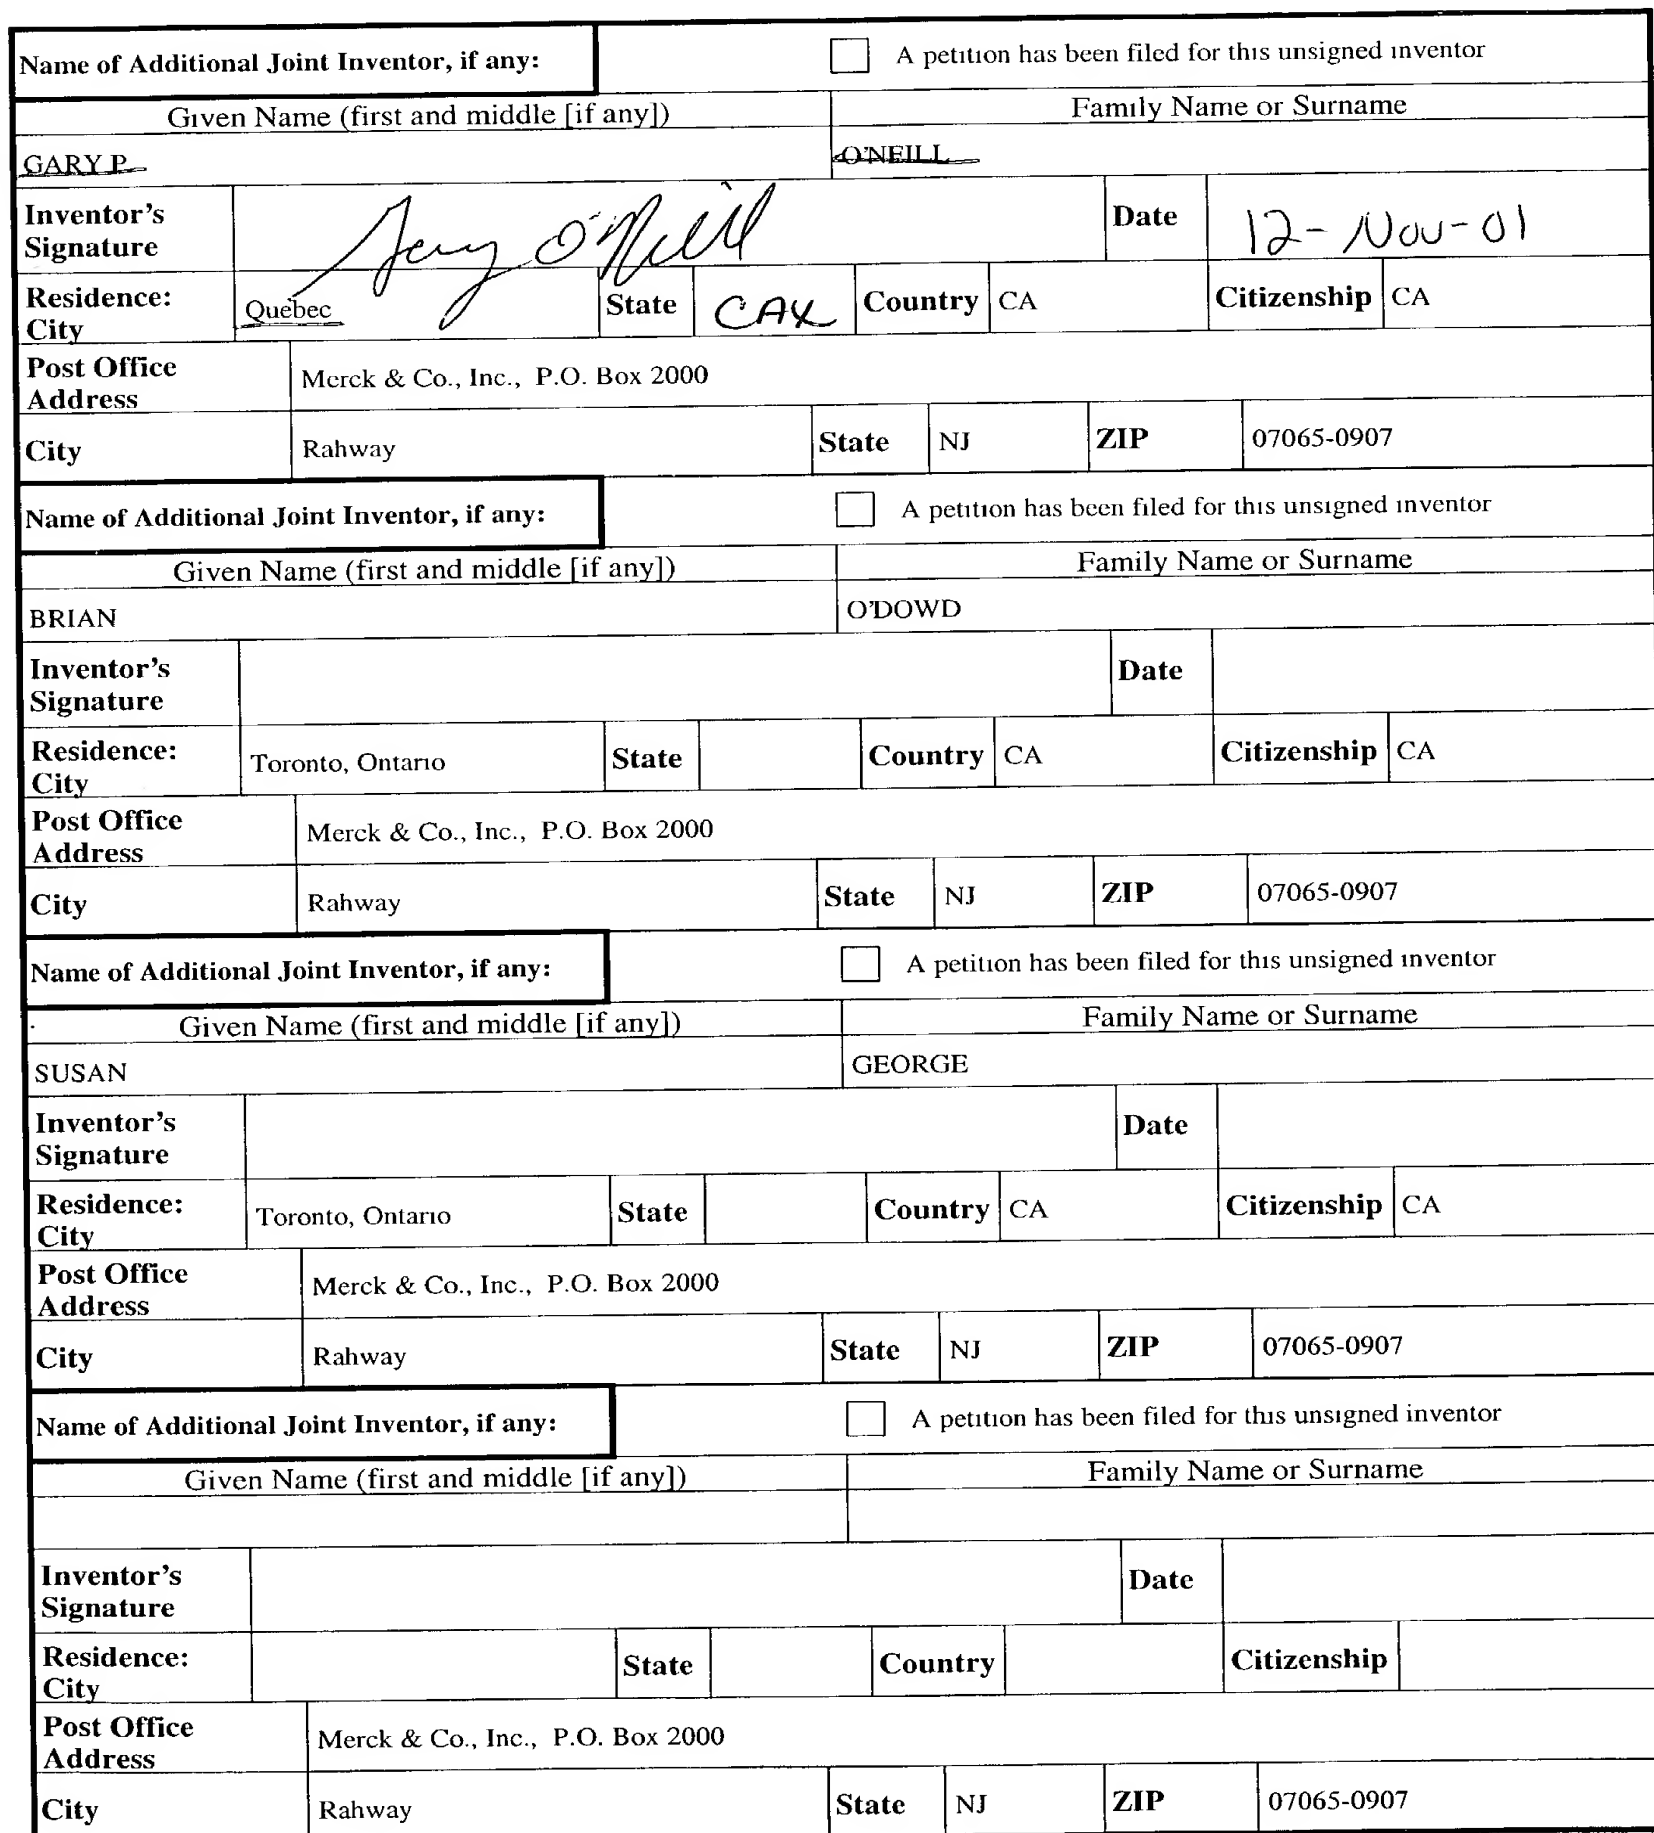 Name of Additional Joint Inventor, if any: A petition has been filed for this unsigned inventor
Given Name (first and middle [if any]) Family Name or Surname
GARY P. O'NEILL
Inventor's Signature Gary O'Neill Date 12-Nov-01
Residence: City Quebec State CAX Country CA Citizenship CA
Post Office Address Merck & Co., Inc., P.O. Box 2000
City Rahway State NJ ZIP 07065-0907
Name of Additional Joint Inventor, if any: A petition has been filed for this unsigned inventor
Given Name (first and middle [if any]) Family Name or Surname
BRIAN O'DOWD
Inventor's Signature Date
Residence: City Toronto, Ontario State Country CA Citizenship CA
Post Office Address Merck & Co., Inc., P.O. Box 2000
City Rahway State NJ ZIP 07065-0907
Name of Additional Joint Inventor, if any: A petition has been filed for this unsigned inventor
Given Name (first and middle [if any]) Family Name or Surname
SUSAN GEORGE
Inventor's Signature Date
Residence: City Toronto, Ontario State Country CA Citizenship CA
Post Office Address Merck & Co., Inc., P.O. Box 2000
City Rahway State NJ ZIP 07065-0907
Name of Additional Joint Inventor, if any: A petition has been filed for this unsigned inventor
Given Name (first and middle [if any]) Family Name or Surname
Inventor's Signature Date
Residence: City State Country Citizenship
Post Office Address Merck & Co., Inc., P.O. Box 2000
City Rahway State NJ ZIP 07065-0907